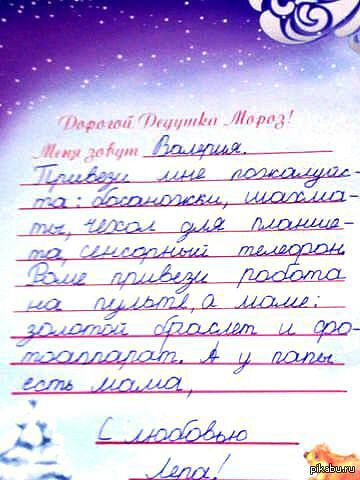 Дорогой Дедушка Мороз!
Меня зовут Валерия.
Привези мне пожалуйс-
та: босаножки, шахма-
ты, чехол для планше-
та, сенсорный телефон.
Роме привези робота
на пульте, а маме:
золотой браслет и фо-
тоаппарат. А у папы
есть мама,
С любовью
Лера!
pikabu.ru